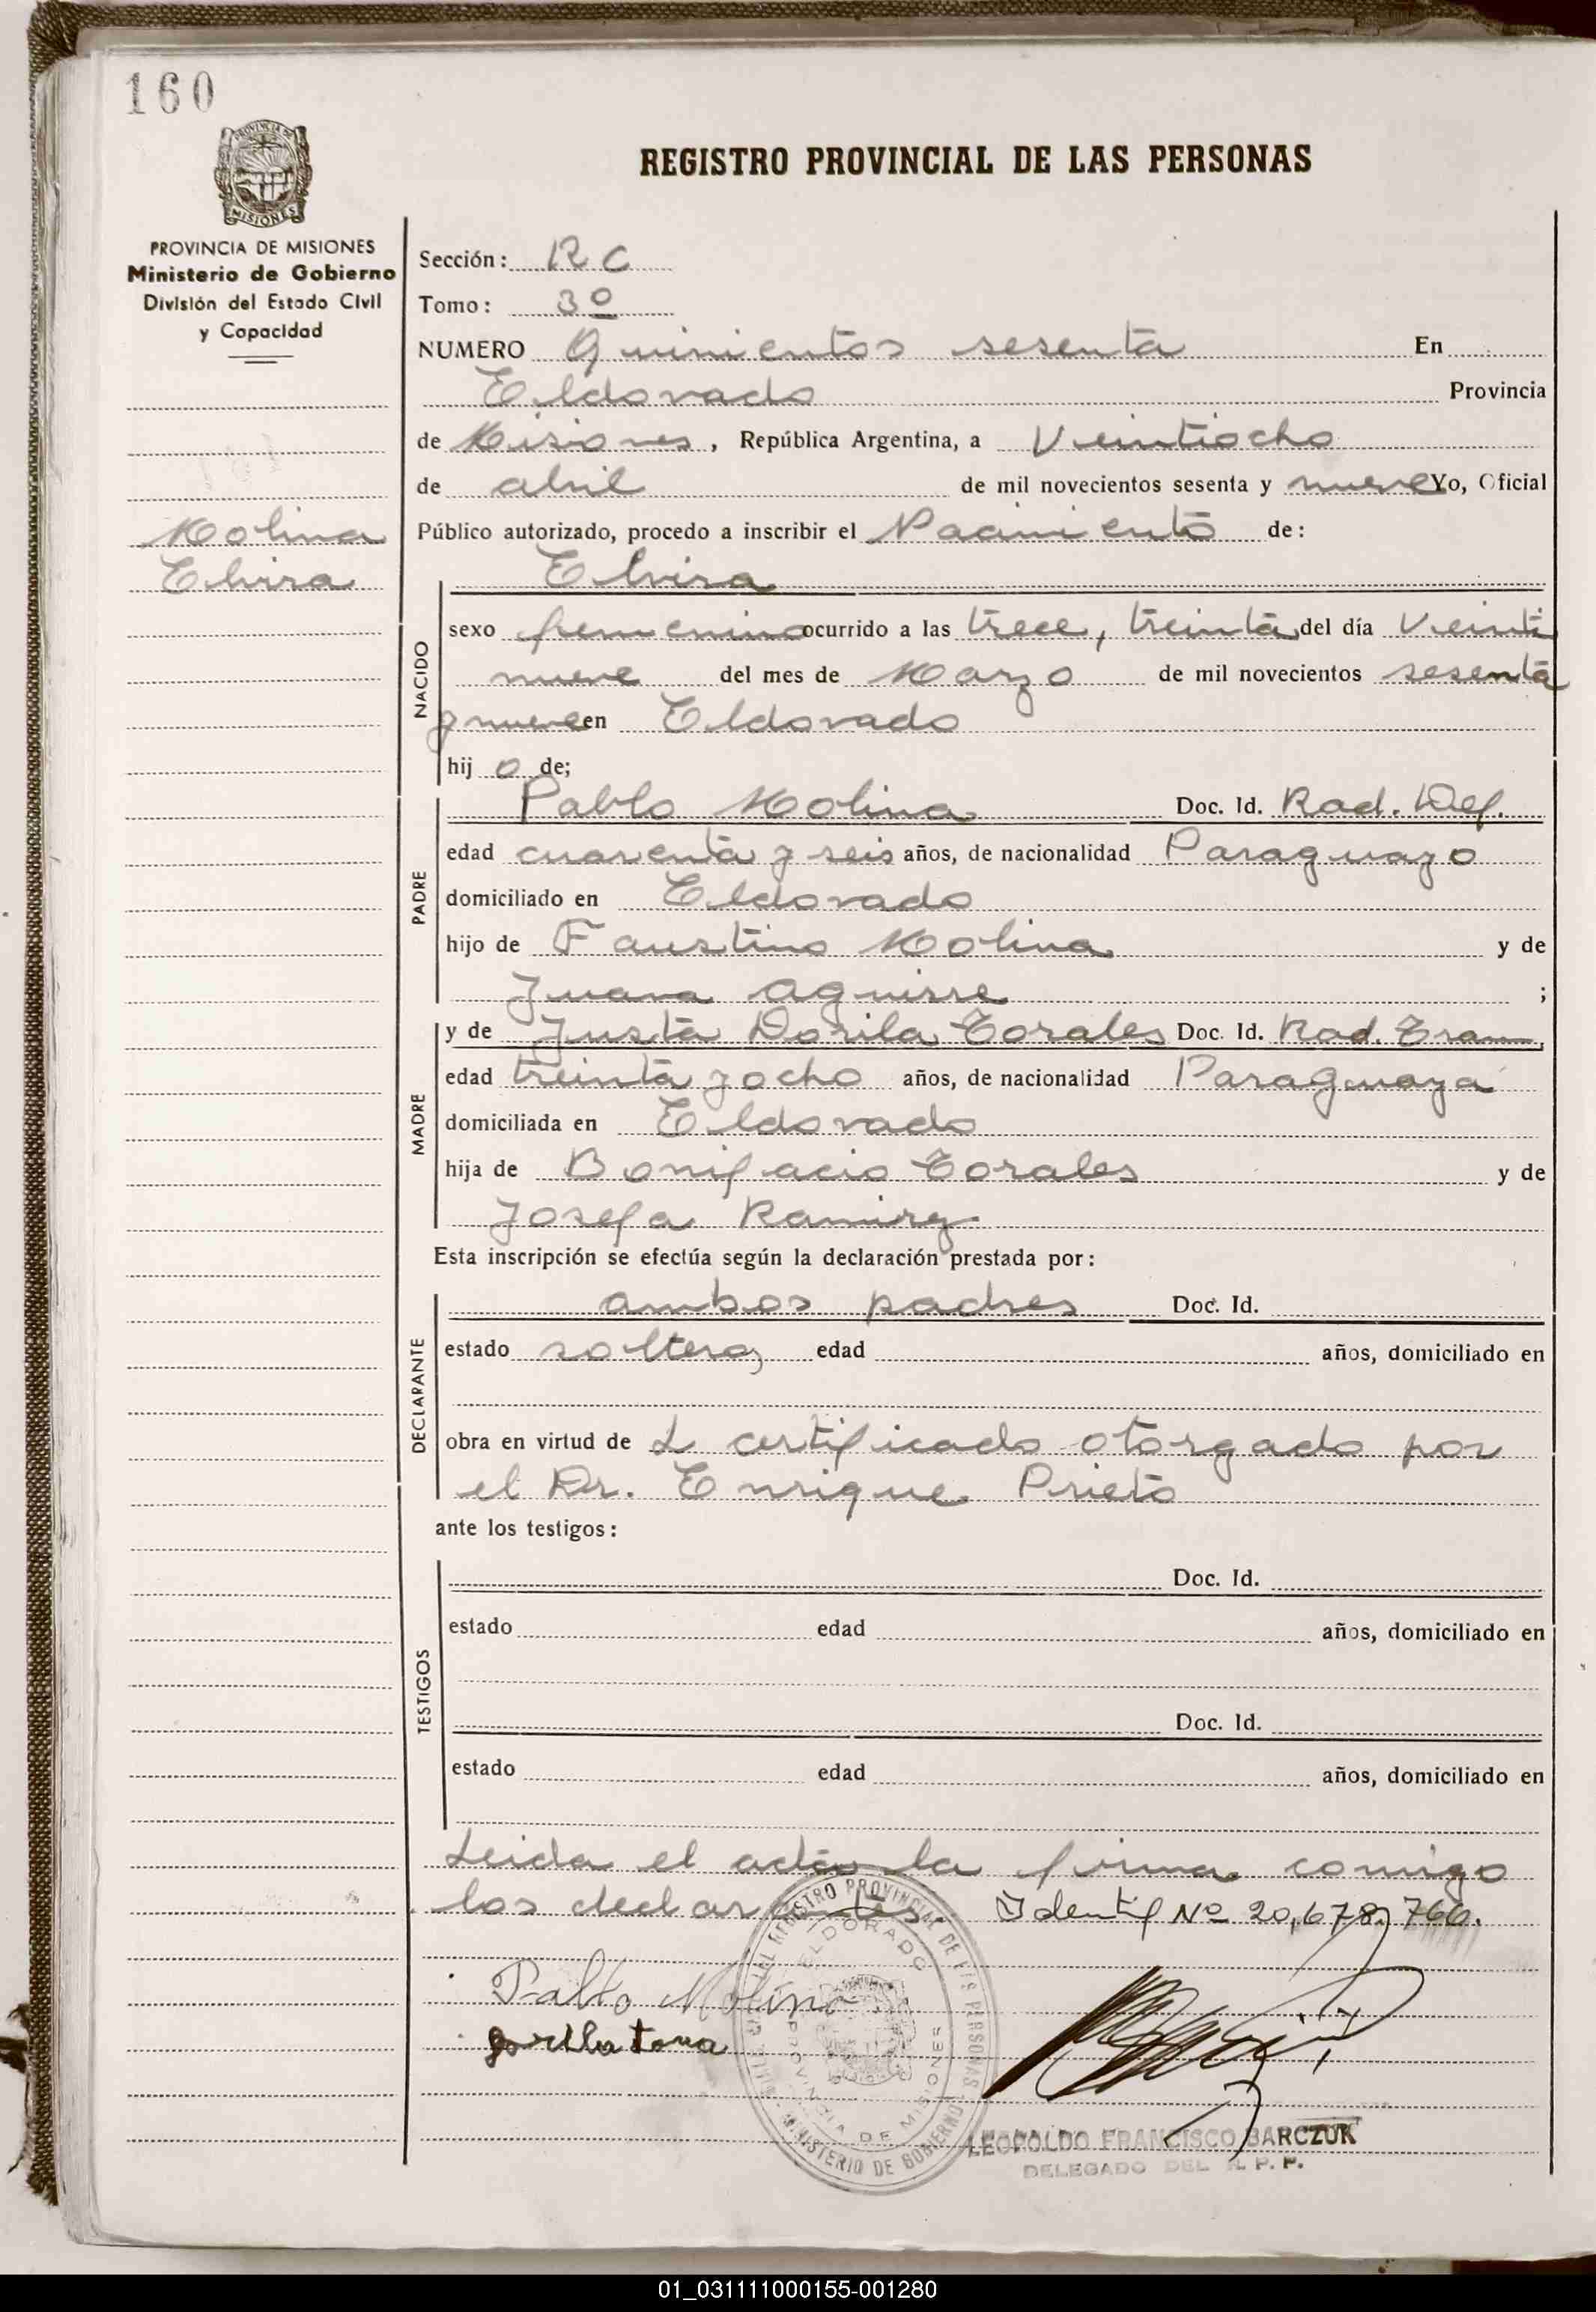 160
REGISTRO PROVINCIAL DE LAS PERSONAS
PROVINCIA DE MISIONES
Ministerio de Gobierno
División del Estado Civil
y Capacidad
Molina
Elvira
Sección: RC
Tomo: 3º
NUMERO Quinientos sesenta En
Eldorado Provincia
de Misiones, República Argentina, a Veintiocho
de abril de mil novecientos sesenta y nueve Yo, Oficial
Público autorizado, procedo a inscribir el Nacimiento de:
Elvira
NACIDO
sexo femenino ocurrido a las trece, treinta del día Veinti
nueve del mes de Marzo de mil novecientos sesenta
y nueve en Eldorado
hij o de;
PADRE
Pablo Molina Doc. Id. Rad. Def.
edad cuarenta y seis años, de nacionalidad Paraguayo
domiciliado en Eldorado
hijo de Faustino Molina y de
Juana Aguirre ;
MADRE
y de Justa Dorila Torales Doc. Id. Rad. Tram
edad treinta y ocho años, de nacionalidad Paraguaya
domiciliada en Eldorado
hija de Bonifacio Torales y de
Josefa Ramirez
Esta inscripción se efectúa según la declaración prestada por:
DECLARANTE
ambos padres Doc. Id.
estado solteros edad años, domiciliado en
obra en virtud de L certificado otorgado por
el Dr. Enrique Prieto
ante los testigos:
TESTIGOS
Doc. Id.
estado edad años, domiciliado en
Doc. Id.
estado edad años, domiciliado en
Leida el acta la firma comigo
los declarantes. Identif Nº 20,678,766.
Pablo Molina
REGISTRO PROVINCIAL DE LAS PERSONAS
ELDORADO
PROVINCIA DE MISIONES
MINISTERIO DE GOBIERNO
LEOPOLDO FRANCISCO BARCZUK
DELEGADO DEL R. P. P.
01_031111000155-001280